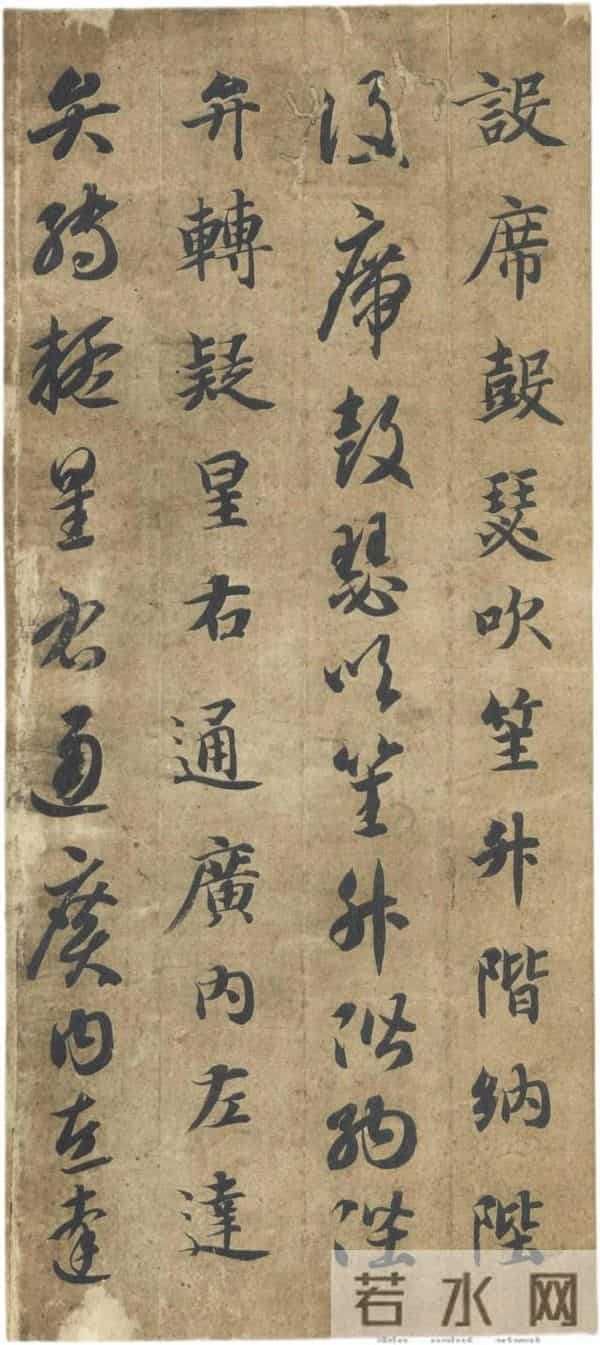 設席鼓瑟吹笙升階納陛
設席鼓瑟吹笙升階納陛
弁轉疑星右通廣內左達
弁轉疑星右通廣內左達
若水网